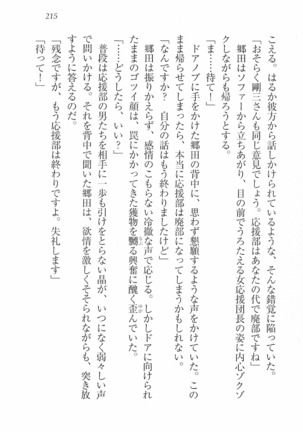 215
こえる。はるか彼方から話しかけられているような、そんな錯覚に陥っていた。
「おそらく剛三さんも同じ意見でしょう。応援部はあなたの代で廃部ですね」
郷田はソファーから立ちあがり、目の前でうろたえる女応援団長の姿に内心ゾクゾ
クしながらも帰ろうとする。
「ま……待て！」
ドアノブに手をかけた郷田の背中に、思わず懇願するような声をかけていた。この
まま帰らせてしまったら、本当に応援部は廃部になってしまうかもしれない。
「なんですか？　自分の話はもう終わりましたけど」
郷田は振りかえらず、感情のこもらない冷徹な声で応じる。しかしドアに向けられ
たままのゴツイ顔は、罠にかかってきた獲物を嬲る興奮に醜く歪んでいた。
「……どうしたら、いい？」
普段は応援部の男たちを相手に一歩も引けをとらない晶が、いつになく弱々しい声
で問いかける。それを背中で聞いた郷田は、欲情を激しくそそられながらも、突き放
すように答えるのだ。
「残念ですが、もう応援部は終わりですよ。失礼します」
「待って！」